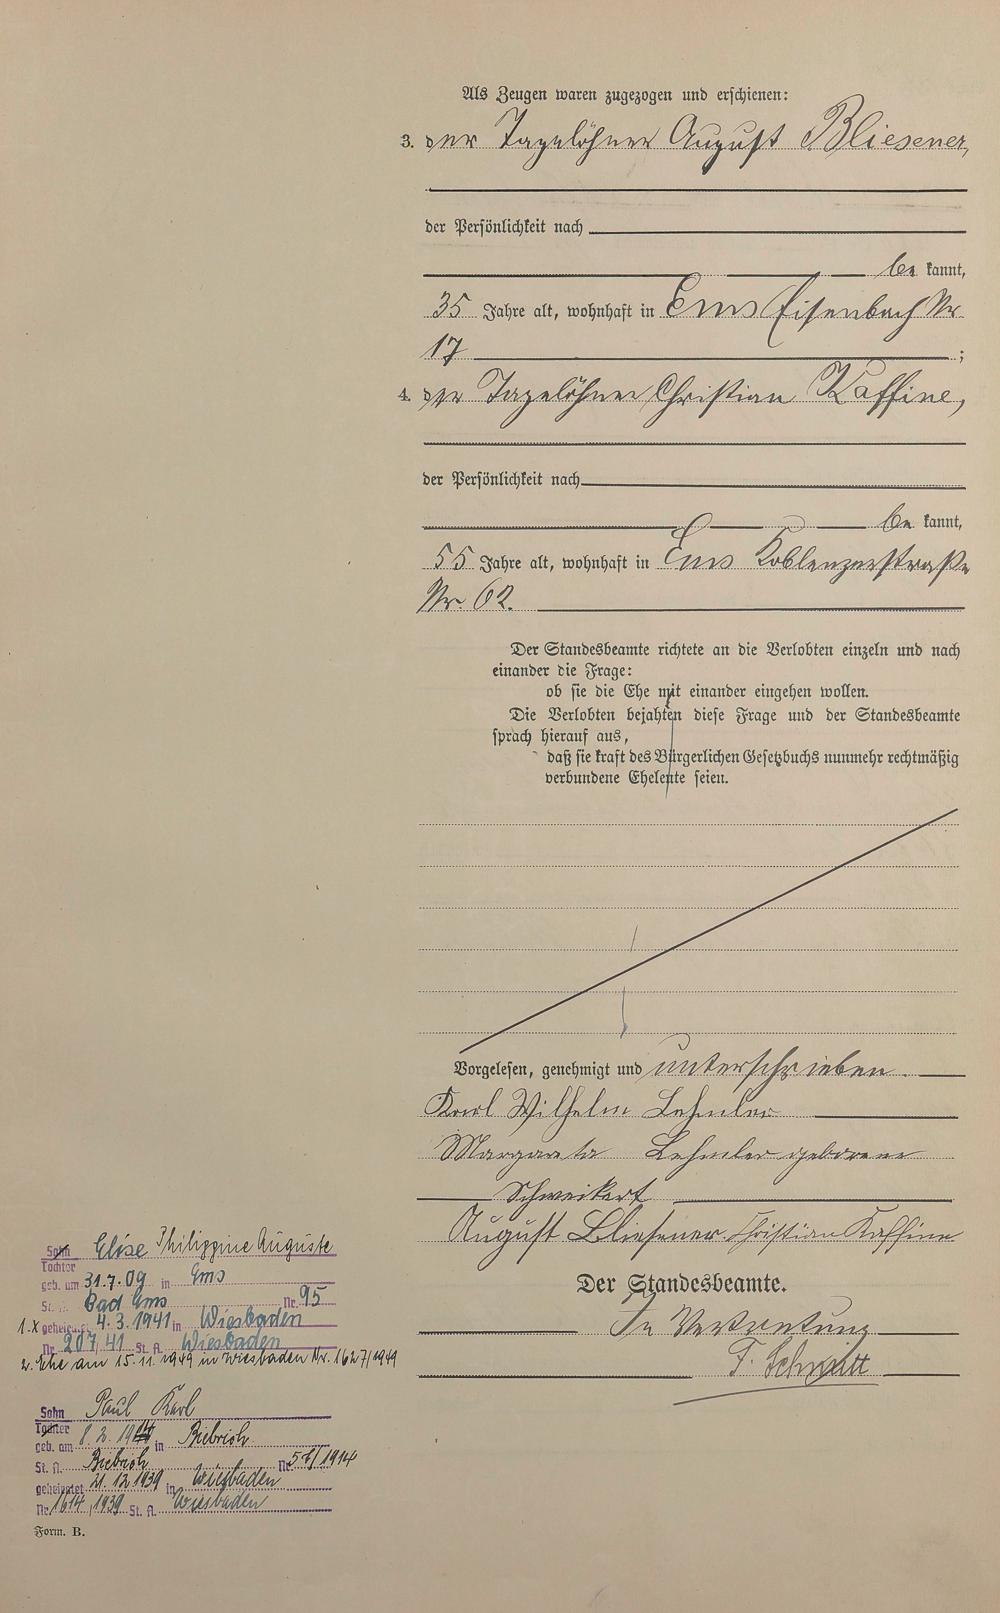 Als Zeugen waren zugezogen und erschienen:
3. der Tagelöhner August Bliesener,
der Persönlichkeit nach
be kannt,
35 Jahre alt, wohnhaft in Ems Eisenbach Nr
17 ;
4. der Tagelöhner Christian Kaffine,
der Persönlichkeit nach
be kannt,
55 Jahre alt, wohnhaft in Ems Koblenzerstraße
Nr. 62.
Der Standesbeamte richtete an die Verlobten einzeln und nach
einander die Frage:
ob sie die Ehe mit einander eingehen wollen.
Die Verlobten bejahten diese Frage und der Standesbeamte
sprach hierauf aus,
daß sie kraft des Bürgerlichen Gesetzbuchs nunmehr rechtmäßig
verbundene Eheleute seien.
Vorgelesen, genehmigt und unterschrieben.
Karl Wilhelm Lehmler
Margareta Lehmler geborene
Schweikert
August Bliesener. Christian Kaffine
Der Standesbeamte.
In Vertretung
F. Schmitt
Sohn Elise Philippine Auguste
Tochter
geb. am 31.7.09 in Ems
St. A. Bad Ems Nr. 95
1.X geheiratet 4.3.1941 in Wiesbaden
Nr. 207/41 St. A. Wiesbaden
2. Ehe am 15.11.1949 in Wiesbaden Nr. 1627/1949
Sohn Paul Karl
Tochter
geb. am 8.2.1914 in Biebrich
St. A. Biebrich Nr. /1914
geheiratet 21.12.1939 in Wiesbaden
Nr. 1614/1939 St. A. Wiesbaden
Form. B.